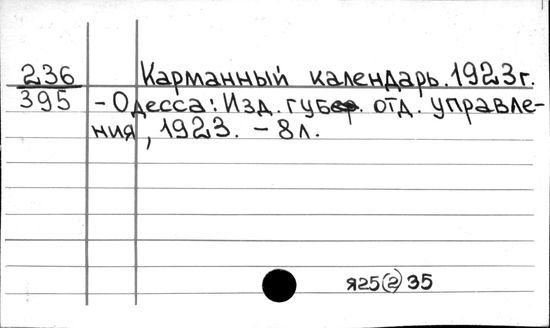 236 Карманный календарь. 1923г.
395 - Одесса: Изд. губер. отд. управле-
ния, 1923. - 8л.
Я25(2)35